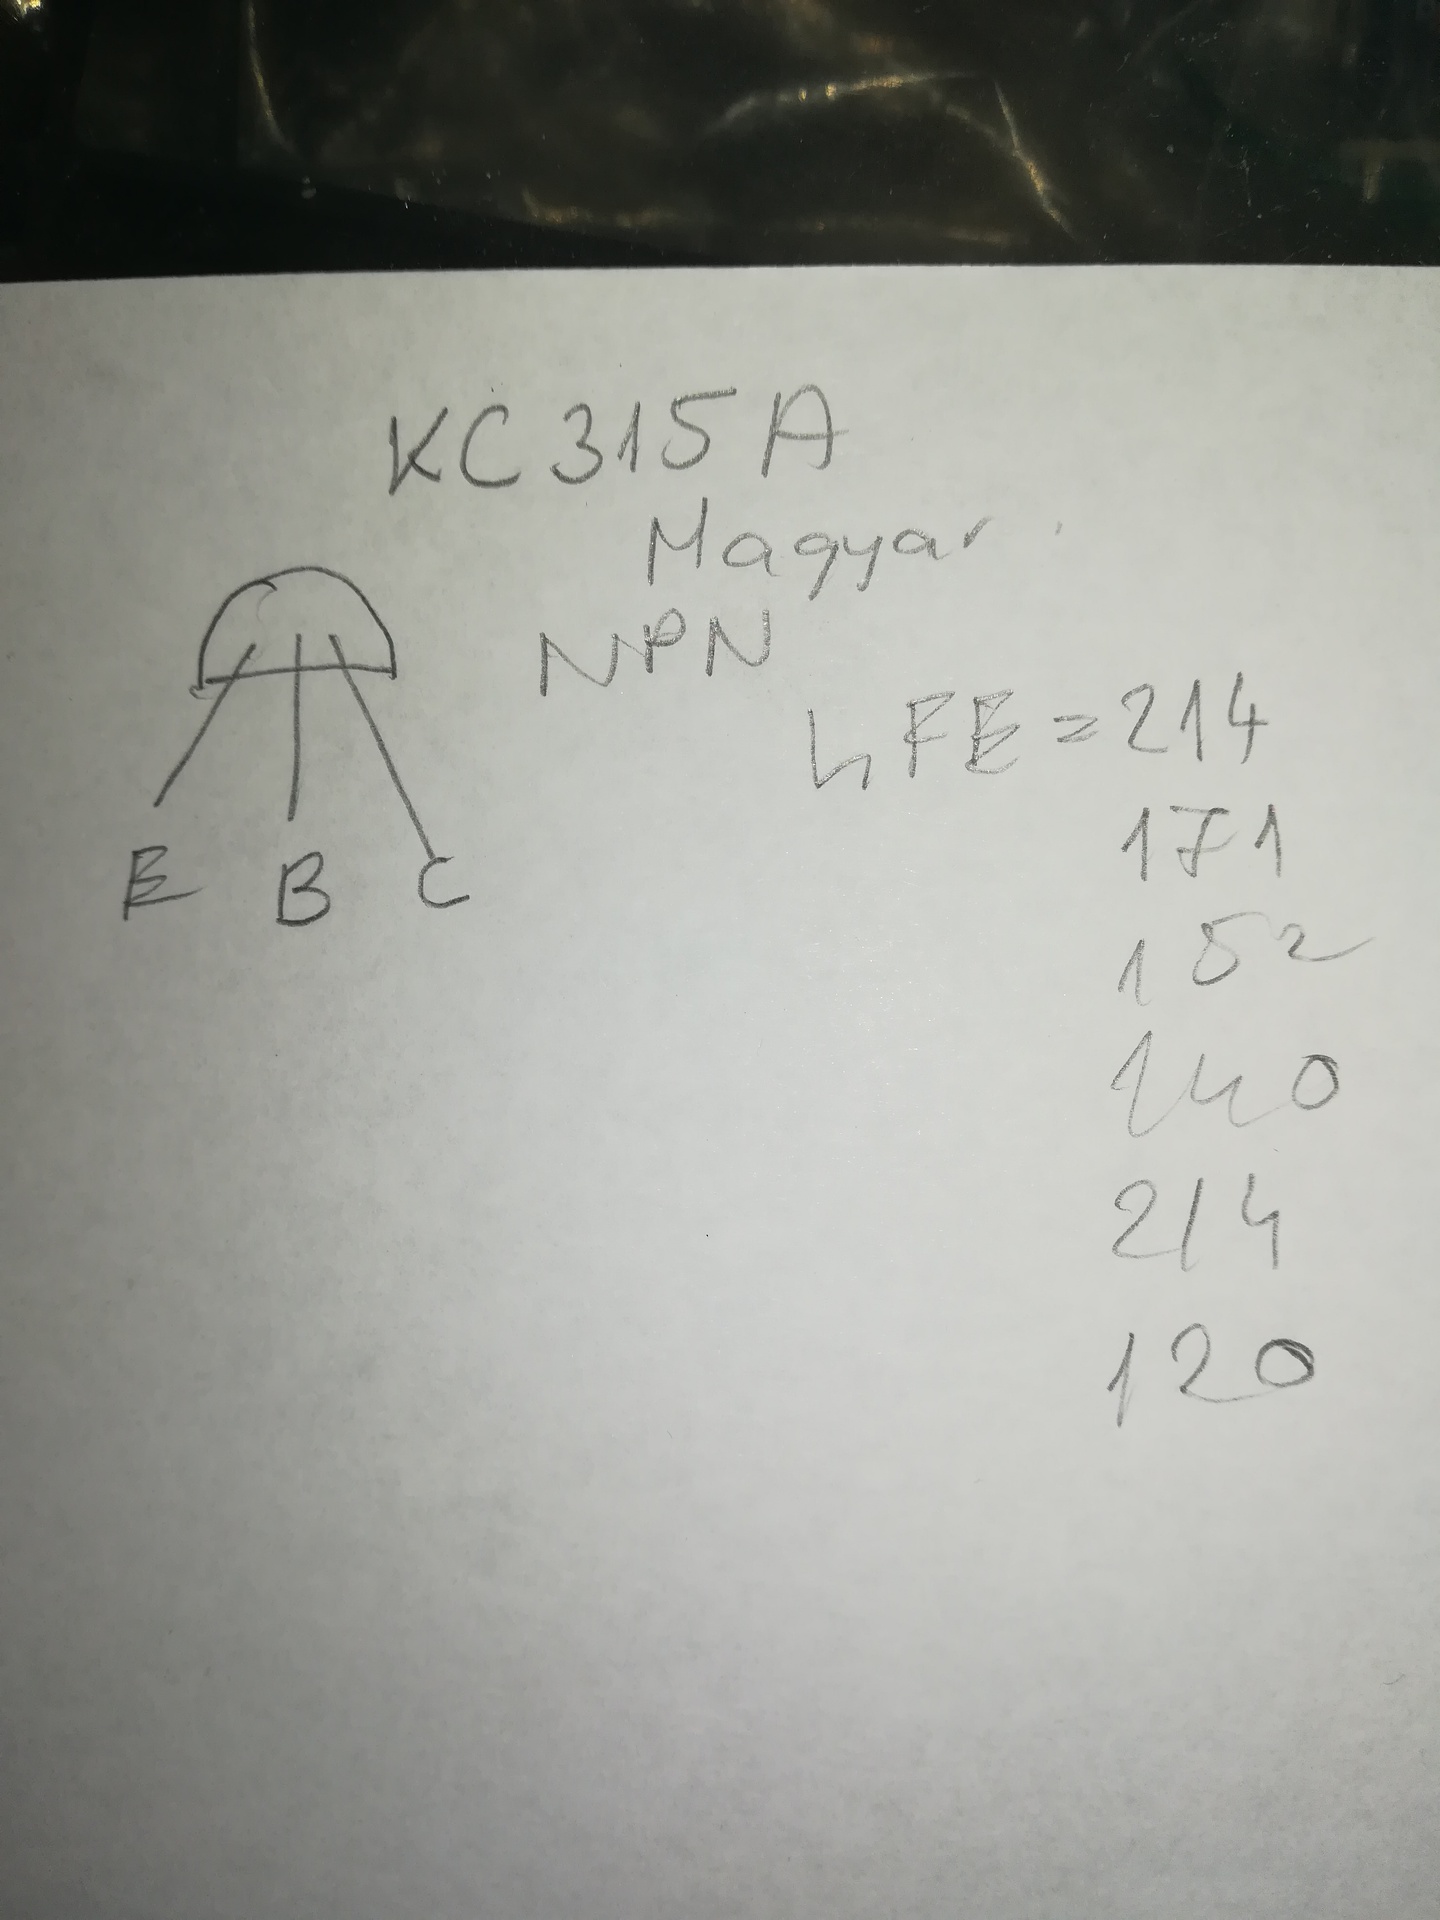 KC315A
Magyar
NPN
hFE=214
171
152
140
214
120
E B C